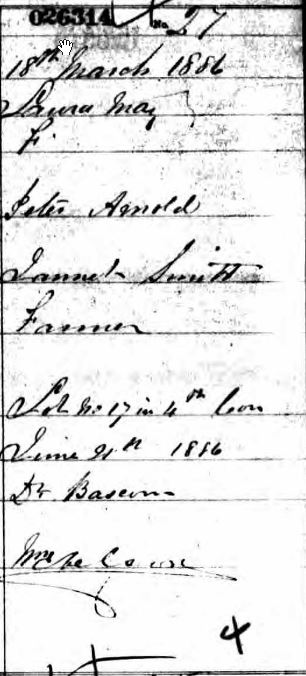 026314 No. 27
18th March 1886
Laura May
F.
Peter Arnold
Jannet Smith
Farmer
Lot No 17 in 4th Con
June 21st 1886
Dr Bascom
4